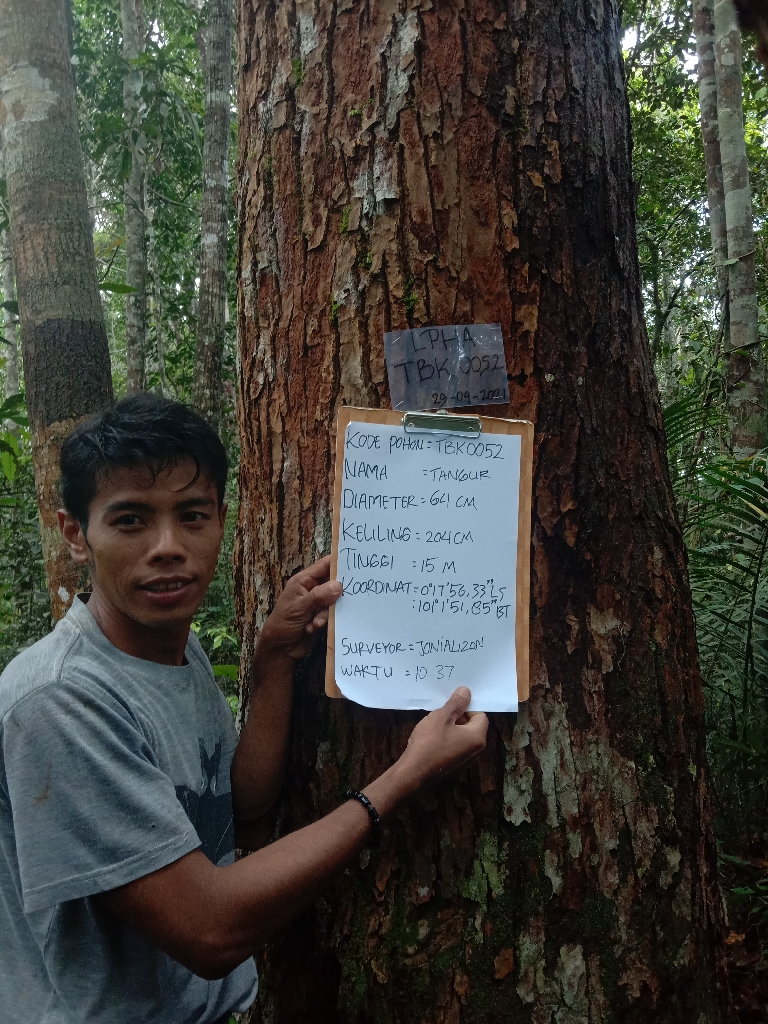 LPHA
TBK 0052
29-04-2021
KODE POHON = TBK0052
NAMA = TANGUR
DIAMETER = 641 CM
KELILING = 204 CM
TINGGI = 15 M
KOORDINAT = 0°17'56,33" LS
: 101°1'51,85" BT
SURVEYOR = JONIALIZON
WAKTU = 10 37